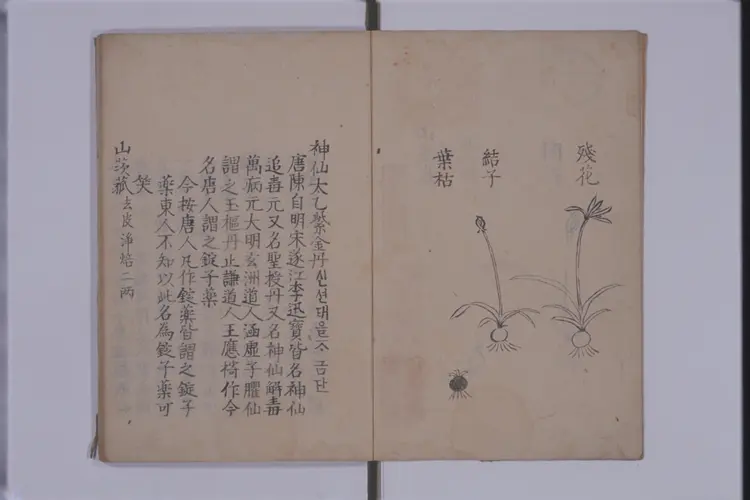 殘花
結子
葉枯
神仙太乙紫金丹신션태을ᄌᆞ금단
唐陳自明宋遂江李迅寶皆名神仙
追毒元又名聖授丹又名神仙解毒
萬病元大明玄洲道人涵虛子臞仙
謂之玉樞丹止謙道人王應㮋作今
名唐人謂之錠子藥
今按唐人凡作錠藥皆謂之錠子
藥東人不知以此名爲錠子藥可
笑
山茨菰去皮淨焙二兩